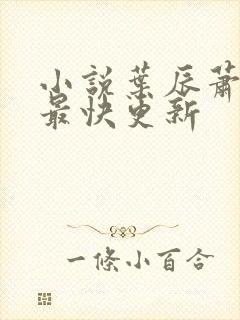 小說葉辰蕭
最快更新
一條小百合